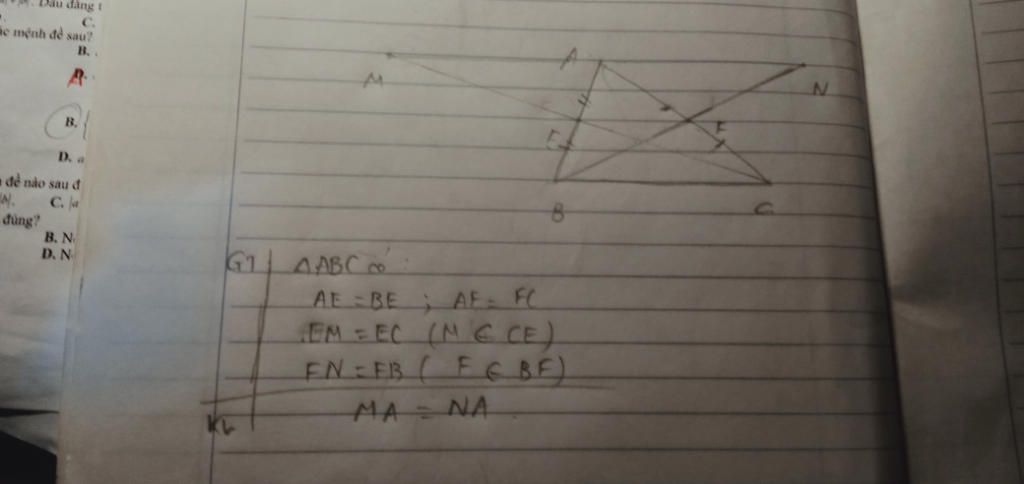 Dấu đẳng t
C.
ác mệnh đề sau?
B.
A
D.
B.
D. a
đề nào sau đ
|b|. C. |a
đúng?
B. N
D. N
M
A
N
E
F
B
C
GT
△ABC có :
AE = BE ; AF = FC
EM = EC ( M ∈ CE )
FN = FB ( F ∈ BF )
KL
MA = NA .